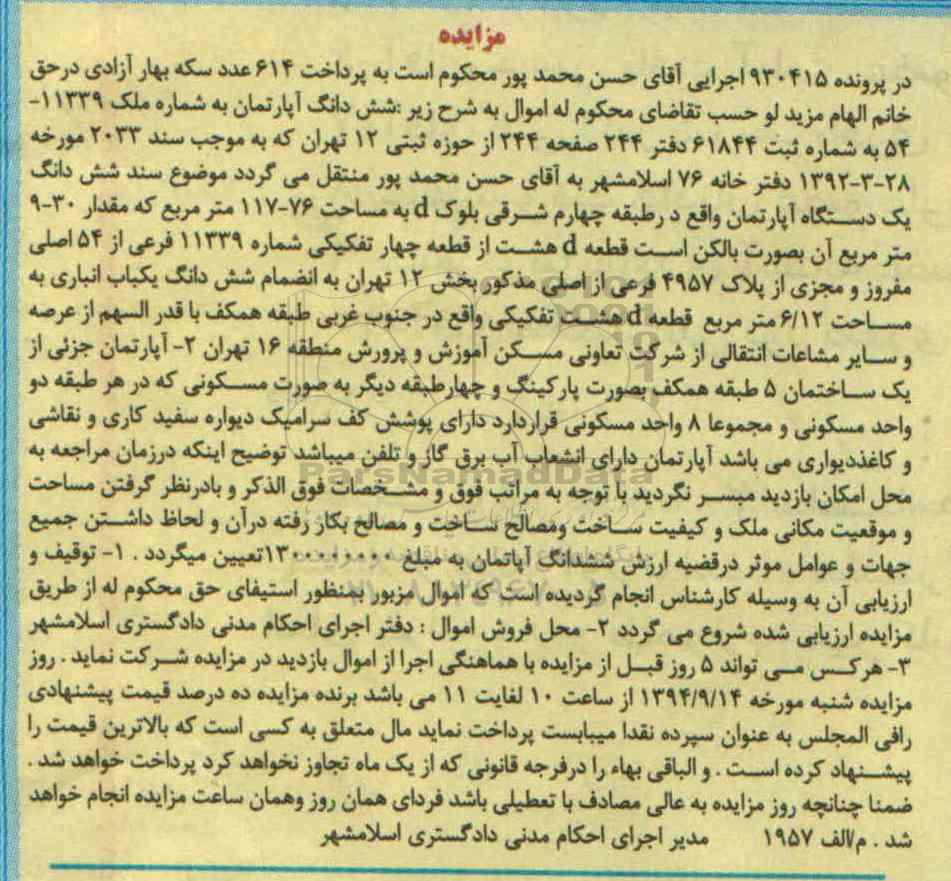 مزایده
در پرونده ۹۳۰۴۱۵ اجرایی آقای حسن محمد پور محکوم است به پرداخت ۶۱۴ عدد سکه بهار آزادی درحق
خانم الهام مزید لو حسب تقاضای محکوم له اموال به شرح زیر :شش دانگ آپارتمان به شماره ملک ۱۱۳۳۹-
۵۴ به شماره ثبت ۶۱۸۴۴ دفتر ۲۴۴ صفحه ۲۴۴ از حوزه ثبتی ۱۲ تهران که به موجب سند ۲۰۳۳ مورخه
۲۸-۳-۱۳۹۲ دفتر خانه ۷۶ اسلامشهر به آقای حسن محمد پور منتقل می گردد موضوع سند شش دانگ
یک دستگاه آپارتمان واقع د رطبقه چهارم شرقی بلوک d به مساحت ۷۶-۱۱۷ متر مربع که مقدار ۳۰-۹
متر مربع آن بصورت بالکن است قطعه d هشت از قطعه چهار تفکیکی شماره ۱۱۳۳۹ فرعی از ۵۴ اصلی
مفروز و مجزی از پلاک ۴۹۵۷ فرعی از اصلی مذکور بخش ۱۲ تهران به انضمام شش دانگ یکباب انباری به
مساحت ۶/۱۲ متر مربع قطعه d هشت تفکیکی واقع در جنوب غربی طبقه همکف با قدر السهم از عرصه
و سایر مشاعات انتقالی از شرکت تعاونی مسکن آموزش و پرورش منطقه ۱۶ تهران ۲- آپارتمان جزئی از
یک ساختمان ۵ طبقه همکف بصورت پارکینگ و چهارطبقه دیگر به صورت مسکونی که در هر طبقه دو
واحد مسکونی و مجموعا ۸ واحد مسکونی قراردارد دارای پوشش کف سرامیک دیواره سفید کاری و نقاشی
و کاغذدیواری می باشد آپارتمان دارای انشعاب آب برق گاز و تلفن میباشد توضیح اینکه درزمان مراجعه به
محل امکان بازدید میسر نگردید با توجه به مراتب فوق و مشخصات فوق الذکر و بادرنظر گرفتن مساحت
و موقعیت مکانی ملک و کیفیت ساخت ومصالح ساخت و مصالح بکار رفته درآن و لحاظ داشتن جمیع
جهات و عوامل موثر درقضیه ارزش ششدانگ آپاتمان به مبلغ ۱۳۰۰۰۰۰۰۰۰تعیین میگردد . ۱- توقیف و
ارزیابی آن به وسیله کارشناس انجام گردیده است که اموال مزبور بمنظور استیفای حق محکوم له از طریق
مزایده ارزیابی شده شروع می گردد ۲- محل فروش اموال : دفتر اجرای احکام مدنی دادگستری اسلامشهر
۳- هرکس می تواند ۵ روز قبل از مزایده با هماهنگی اجرا از اموال بازدید در مزایده شرکت نماید . روز
مزایده شنبه مورخه ۱۳۹۴/۹/۱۴ از ساعت ۱۰ لغایت ۱۱ می باشد برنده مزایده ده درصد قیمت پیشنهادی
رافی المجلس به عنوان سپرده نقدا میبابست پرداخت نماید مال متعلق به کسی است که بالاترین قیمت را
پیشنهاد کرده است . و الباقی بهاء را درفرجه قانونی که از یک ماه تجاوز نخواهد کرد پرداخت خواهد شد .
ضمنا چنانچه روز مزایده به عالی مصادف با تعطیلی باشد فردای همان روز وهمان ساعت مزایده انجام خواهد
شد . م/الف ۱۹۵۷ مدیر اجرای احکام مدنی دادگستری اسلامشهر
ParsNamadData